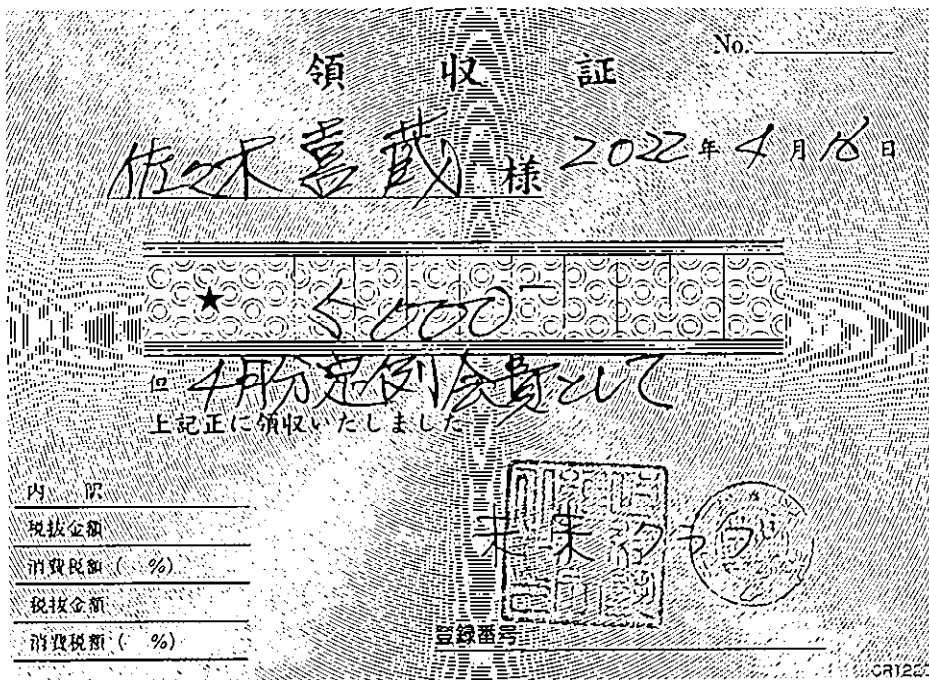 No.
領収証
佐々木喜蔵 様 2022年4月16日
★ 5000-
但 4月分定例会費として
上記正に領収いたしました
内訳
税抜金額
消費税額( %)
税抜金額
消費税額( %)
未来クラブ
登録番号